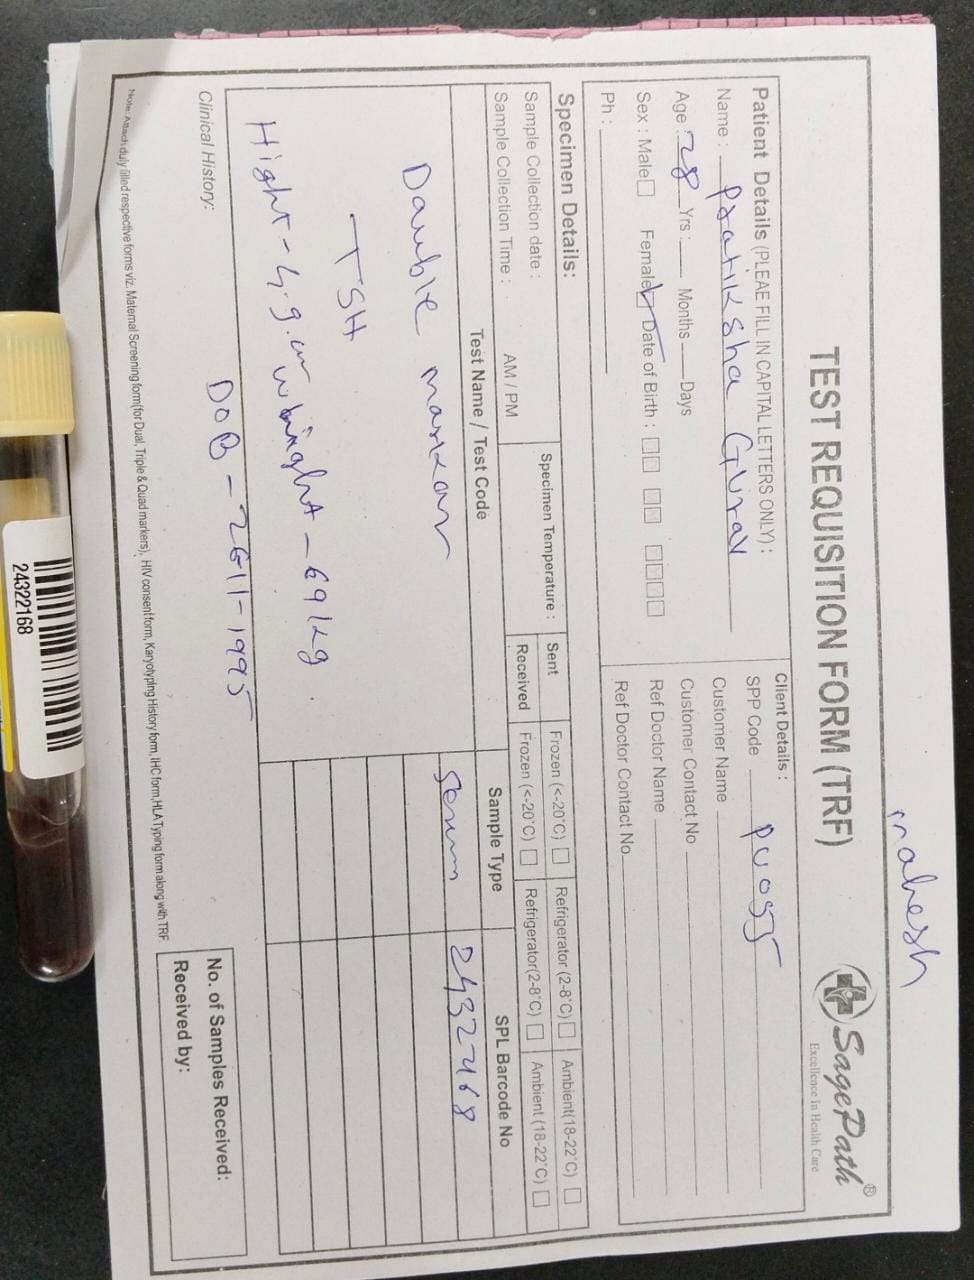 mahesh
SagePath®
Excellence In Health Care
TEST REQUISITION FORM (TRF)
Patient Details (PLEAE FILL IN CAPITAL LETTERS ONLY) :
Name : Pratiksha Gurav
Age : 28 Yrs : Months Days
Sex : Male Female Date of Birth :
Ph :
Client Details :
SPP Code
Customer Name
Customer Contact No
Ref Doctor Name
Ref Doctor Contact No
Specimen Details:
Sample Collection date :
Sample Collection Time : AM / PM
Specimen Temperature :
Sent Frozen (<-20°C) Refrigerator (2-8°C) Ambient(18-22°C)
Received Frozen (<-20°C) Refrigerator(2-8°C) Ambient (18-22°C)
Test Name / Test Code Sample Type SPL Barcode No
Double marker
TSH
Hight - 5.9. cm weinght - 69 kg.
DOB - 26-11-1995
Serum
Clinical History:
No. of Samples Received:
Received by:
Note: Attach duly filled respective forms viz. Maternal Screening form(for Dual, Triple & Quad markers), HIV consent form, Karyotyping History form, IHC form, HLA Typing form along with TRF.
24322168